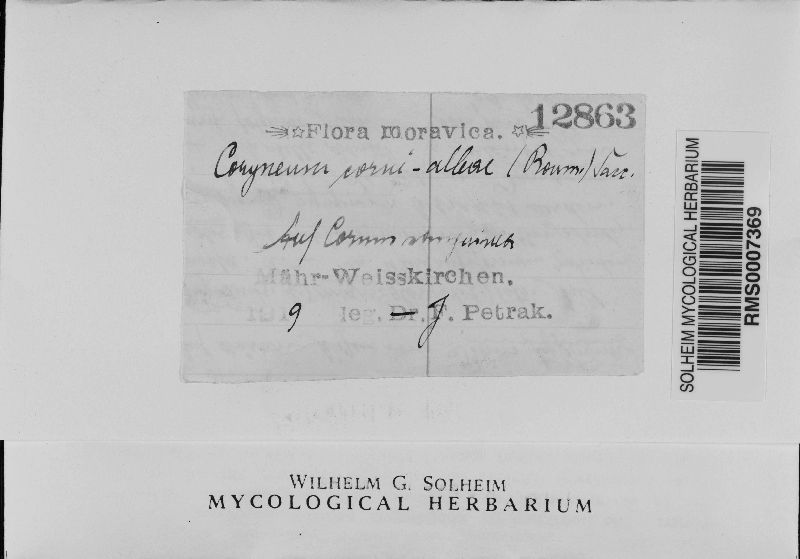 12863
Flora moravica.
Coryneum corni-albae (Roum.) Sacc.
Auf Cornus sanguinea
Mähr-Weisskirchen.
191 9 leg. Dr. J. F. Petrak.
SOLHEIM MYCOLOGICAL HERBARIUM
RMS0007369
WILHELM G. SOLHEIM
MYCOLOGICAL HERBARIUM